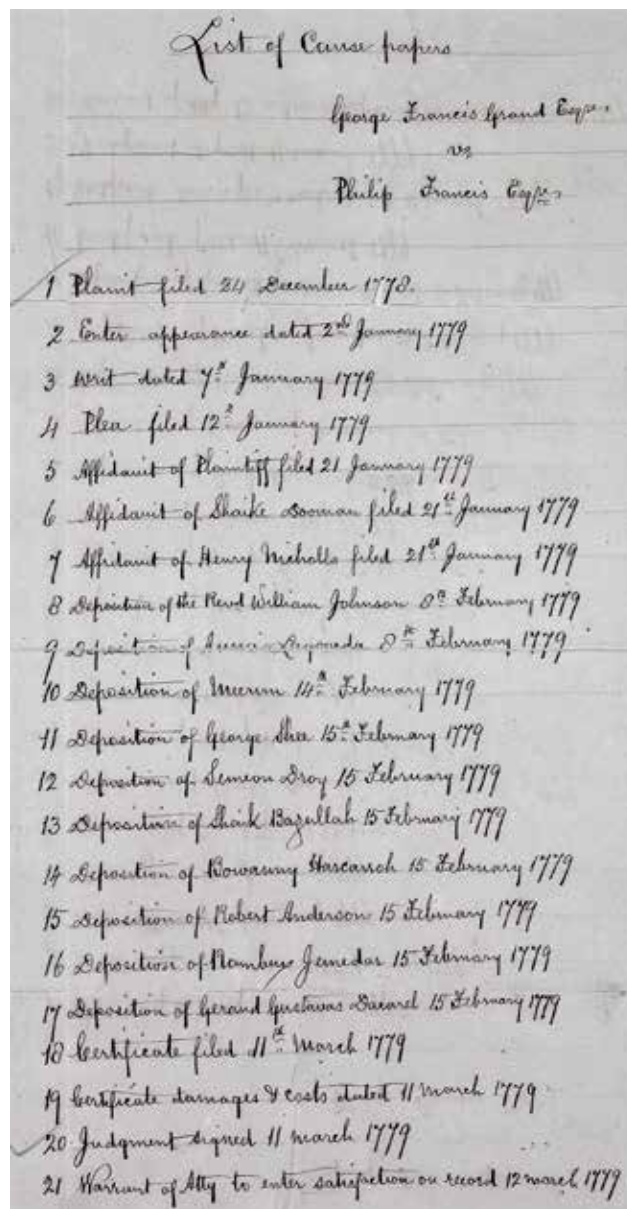 List of Cause papers
George Francis Grand Esqre
vs
Philip Francis Esqre
1 Plaint filed 24 December 1778.
2 Enter appearance dated 2nd January 1779
3 Writ dated 7th January 1779
4 Plea filed 12th January 1779
5 Affidavit of Plaintiff filed 21 January 1779
6 Affidavit of Shaike filed 21st January 1779
7 Affidavit of Henry Nicholls filed 21st January 1779
8 Deposition of the Revd William Johnson 8th February 1779
9 Deposition of 8th February 1779
10 Deposition of Meerum 14th February 1779
11 Deposition of George Shee 15th February 1779
12 Deposition of Semeon Droy 15 February 1779
13 Deposition of Shaik Bazullah 15 February 1779
14 Deposition of Bowanny 15 February 1779
15 Deposition of Robert Anderson 15 February 1779
16 Deposition of Rambux Jemedar 15 February 1779
17 Deposition of Gerard Gustavas Ducarel 15 February 1779
18 Certificate filed 11th March 1779
19 Certificate damages & costs dated 11 March 1779
20 Judgment signed 11 March 1779
21 Warrant of Atty to enter satisfaction on record 12 march 1779